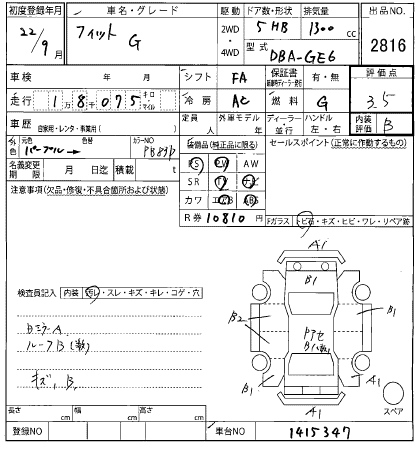 初度登録年月 車名・グレード 駆動 ドア数・形状 排気量 出品NO.
22/9月 フィット G 2WD ・ 4WD 5HB 1300 cc 2816
型式 DBA-GE6
車検 年 月 シフト FA 保証書 有・無 評価点
走行 1 8 075 キロ マイル 冷房 AC 燃料 G 3.5
車歴 自家用・レンタ・事業用( ) 定員 人 外車モデル 年 ディーラー・並行 ハンドル 左・右 内装評価 B
外色 元色 パープル→ 色替 カラーNO 装備品(純正品に限る) セールスポイント(正常に作動するもの)
名義変更期限 月 日迄 積載 t PS PW AW
注意事項(欠品・修復・不具合箇所および状態) SR
カワ ABS
R券 10810 円 Fガラス トビ石・キズ・ヒビ・ワレ・リペア跡
A1
B1
検査員記入 内装 ヨゴレ・スレ・キズ・キレ・コゲ・穴
B2
Bミラー A
ルーフB(数)
キズ、B
B1 A1
A1 スペア
長さ cm 幅 cm 高さ cm
登録NO 車台NO 1415347